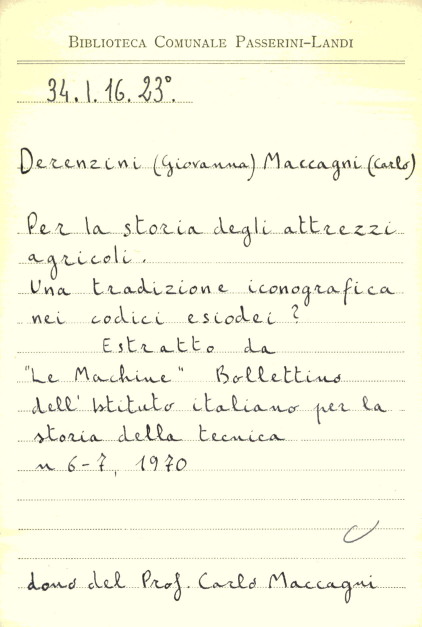 BIBLIOTECA COMUNALE PASSERINI-LANDI
34. I. 16. 23°.
Derenzini (Giovanna) Maccagni (Carlo)
Per la storia degli attrezzi
agricoli.
Una tradizione iconografica
nei codici esiodei?
Estratto da
"Le Machine" Bollettino
dell'Istituto italiano per la
storia della tecnica
n 6-7, 1970
dono del Prof. Carlo Maccagni